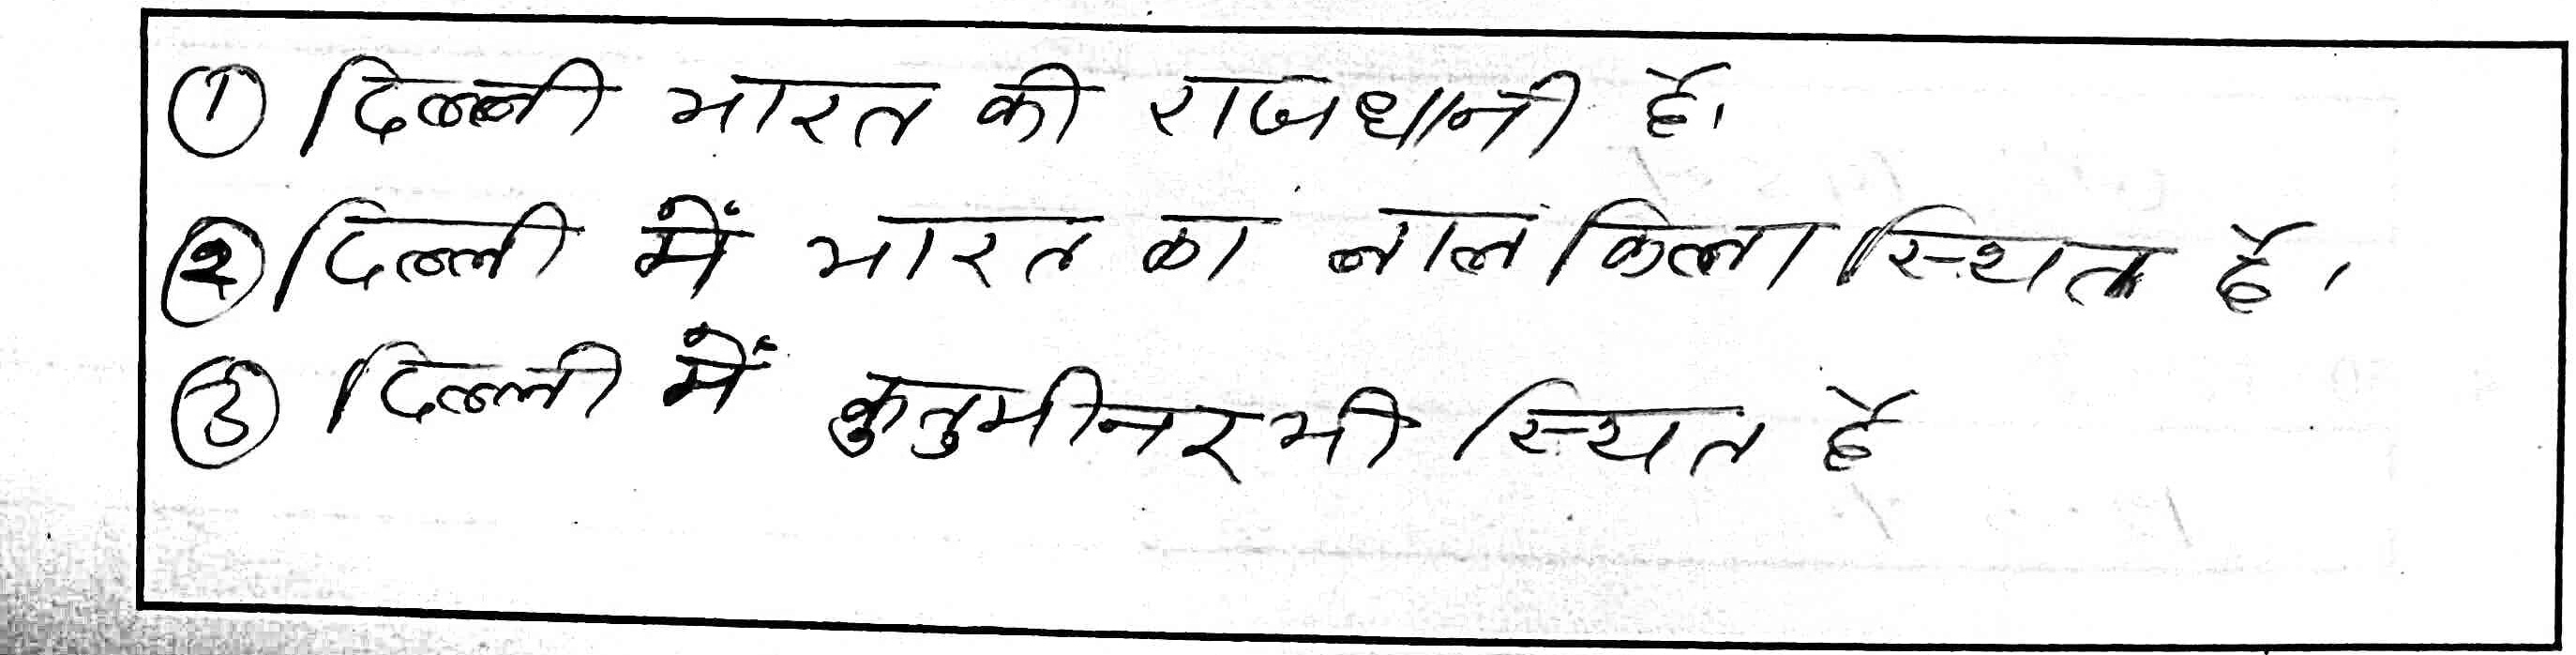 ① दिल्ली भारत की राजधानी है।
② दिल्ली में भारत का लाल किला स्थित है।
③ दिल्ली में कुतुमीनर भी स्थित है